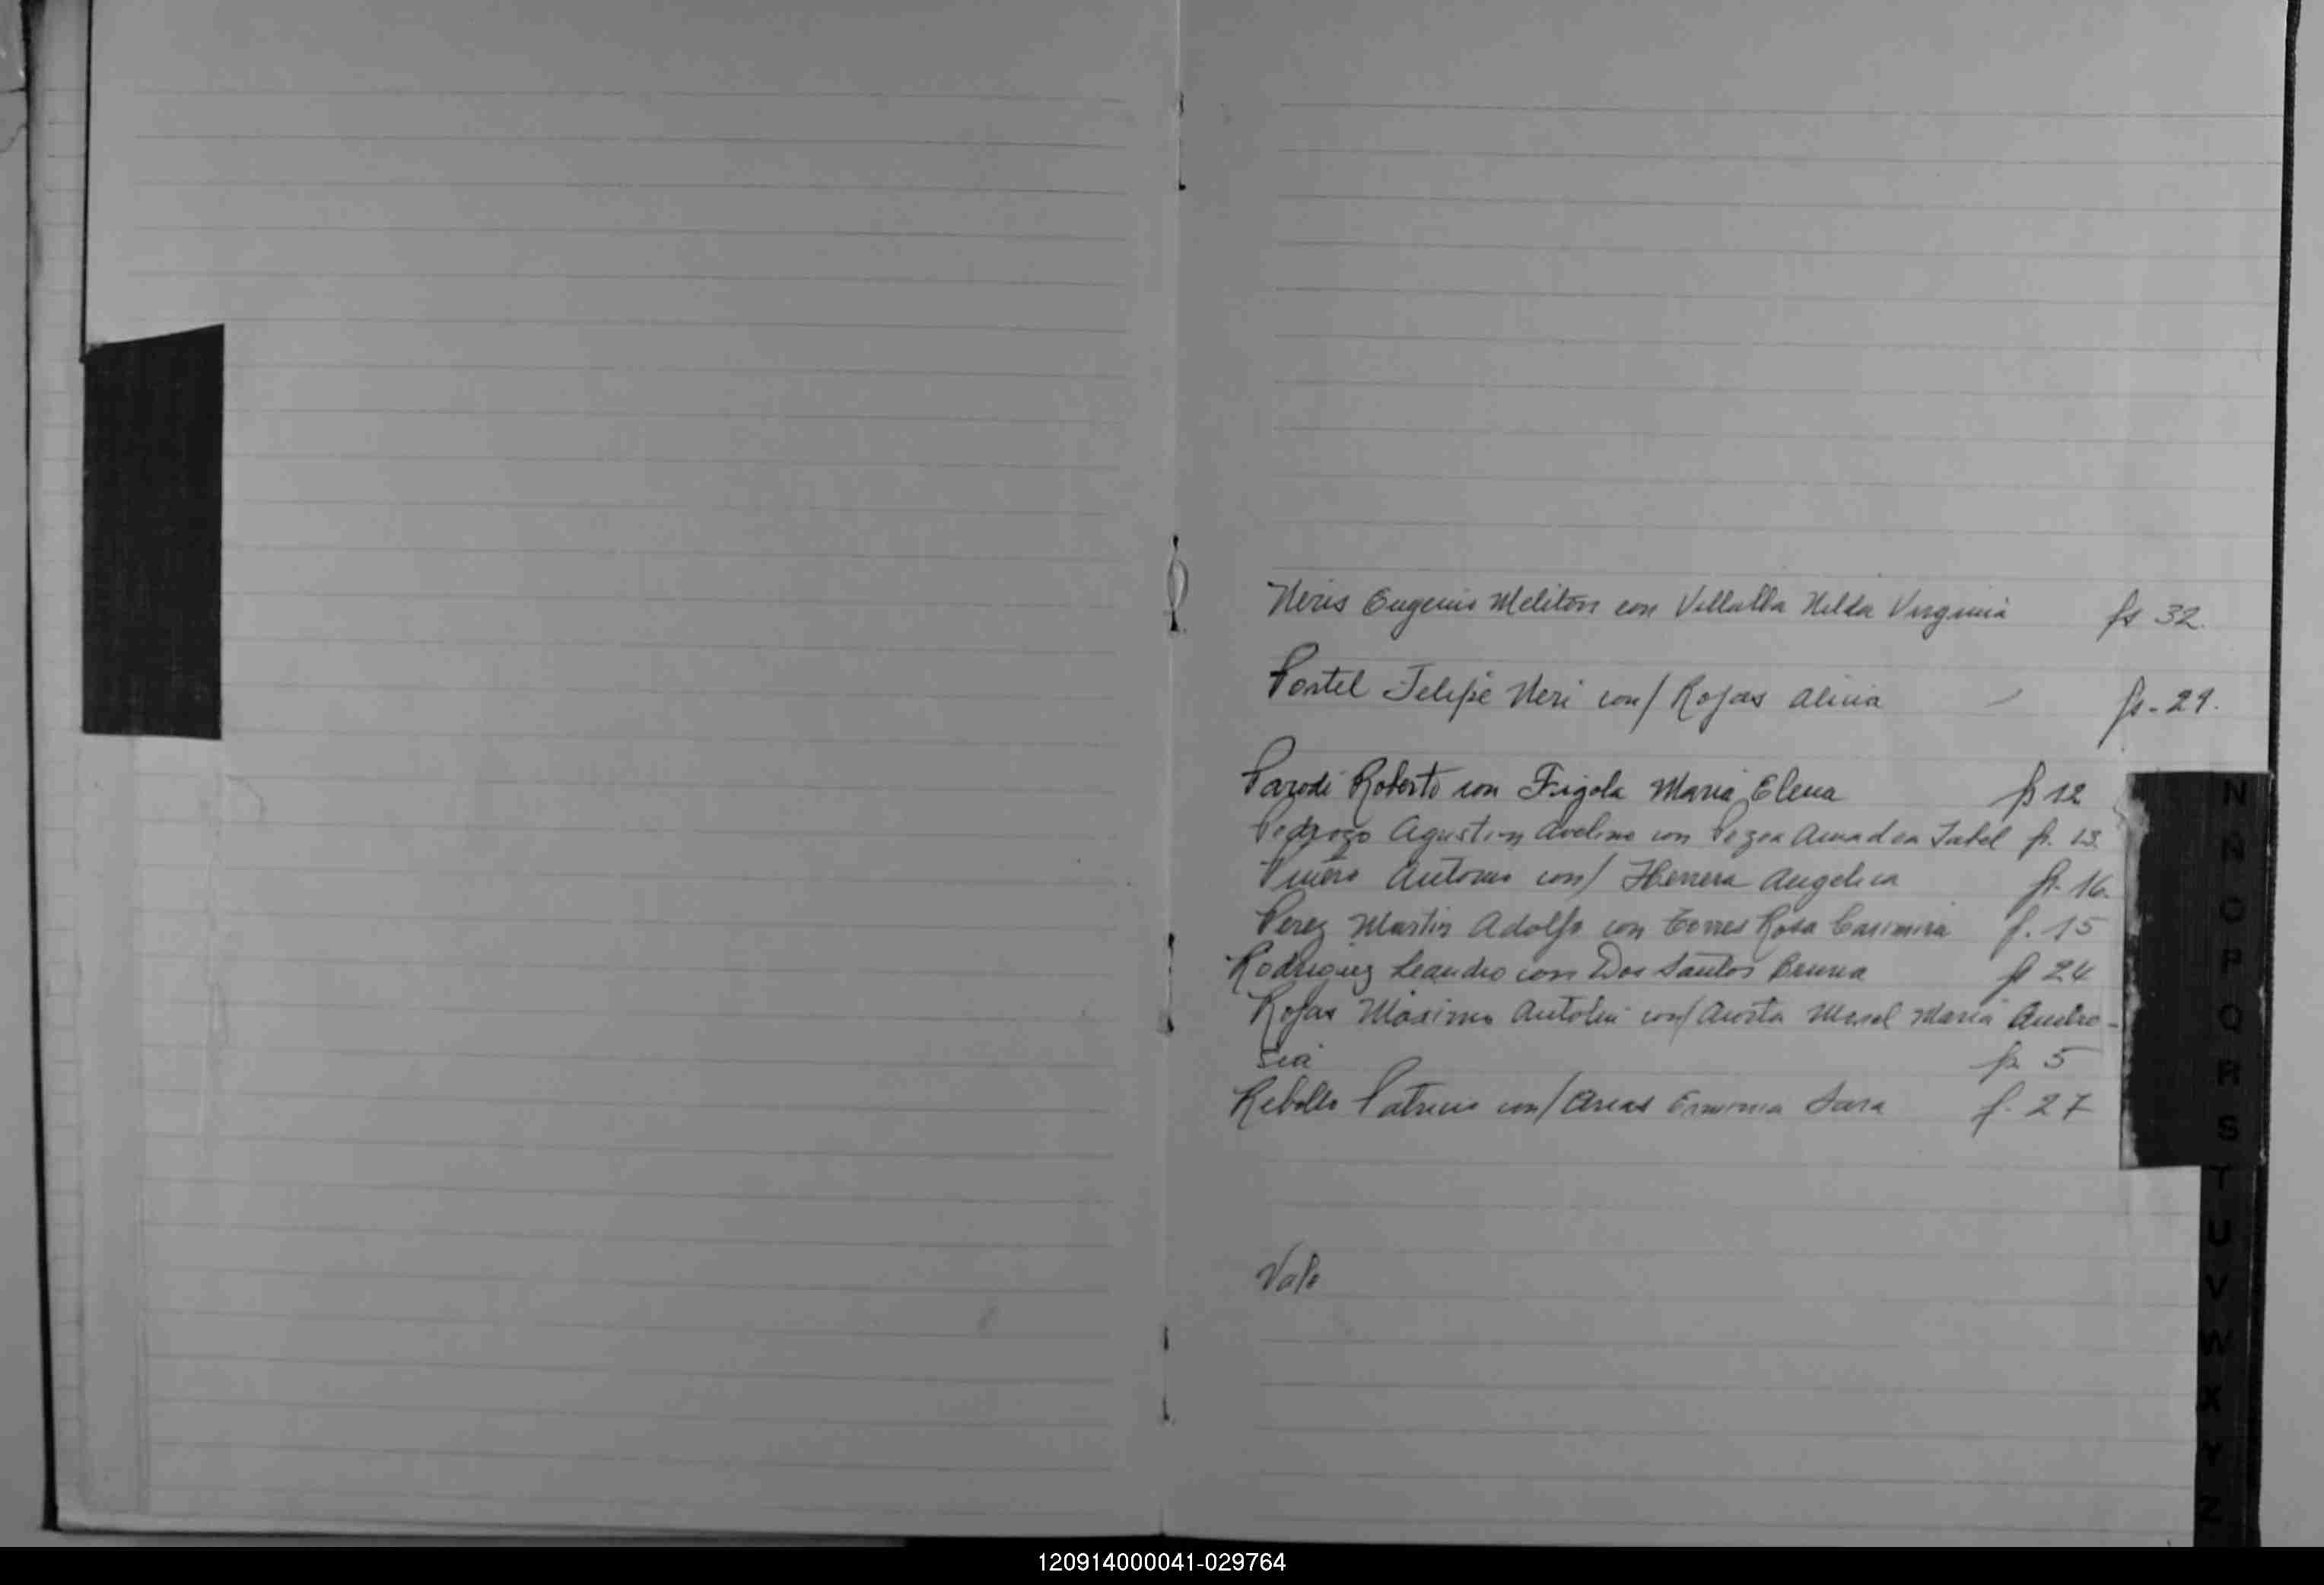 Neris Eugenio Melitón con Villalba Nilda Virginia fs 32.
Portel Felipe Neri con/ Rojas Alicia fs. 29.
Parodi Roberto con Frigola Maria Elena fs 12
Pedrozo Agustin Avelino con Amadea Isabel fs. 13.
Antonio con/ Herrera Angelica fs. 16.
Perez Martin Adolfo con Torres Rosa Casimira f. 15
Rodriguez Leandro con Dos Santos Bruna fs 24
Rojas Máximo Antolin con/ Acosta Maria
sia fs 5
Rebollo Patricio con/ Arias Erminia Sara f. 27
Vale
N
Ñ
O
P
Q
R
S
T
U
V
W
X
Y
Z
120914000041-029764